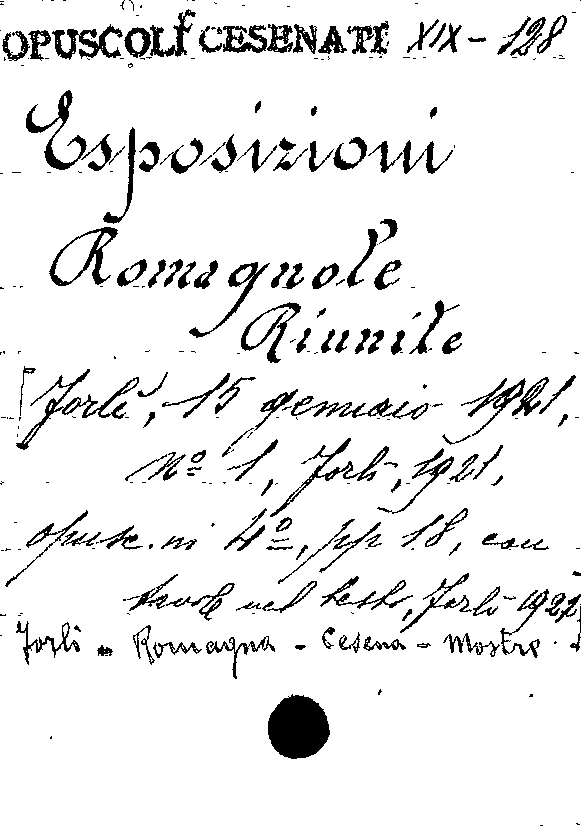 OPUSCOLI CESENATI XIX - 128
Esposizioni
Romagnole
Riunite
[Forlì, 15 gennaio 1921,
Nº 1, Forlì, 1921,
opusc. in 4º, pp 18, con
tavole nel testo, Forlì 1922]
Forlì - Romagna - Cesena - Mostre.